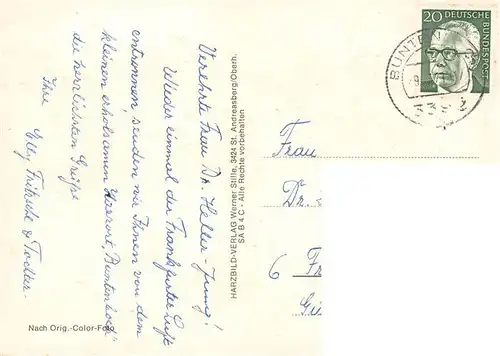 Verehrte Frau Dr. Heller-Jung!
Wieder einmal der Frankfurter Luft
entronnen, senden wir Ihnen von dem
kleinen erholsamen Harzort „Buntenbock"
die herzlichsten Grüße
Ihre
Elly Fritsche & Tochter.
Nach Orig.-Color-Foto
HARZBILD-VERLAG Werner Stille, 3424 St. Andreasberg/Oberh.
SA B 4 C - Alle Rechte vorbehalten
20 DEUTSCHE BUNDESPOST
BUNTEN
Frau
Dr.
6 Fr